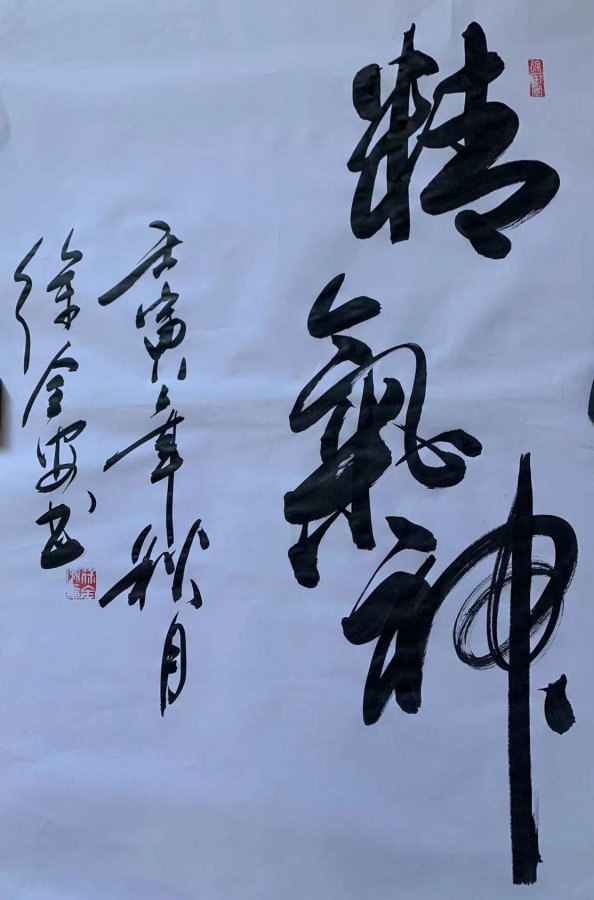 精氣神
壬寅年秋月
徐金安书